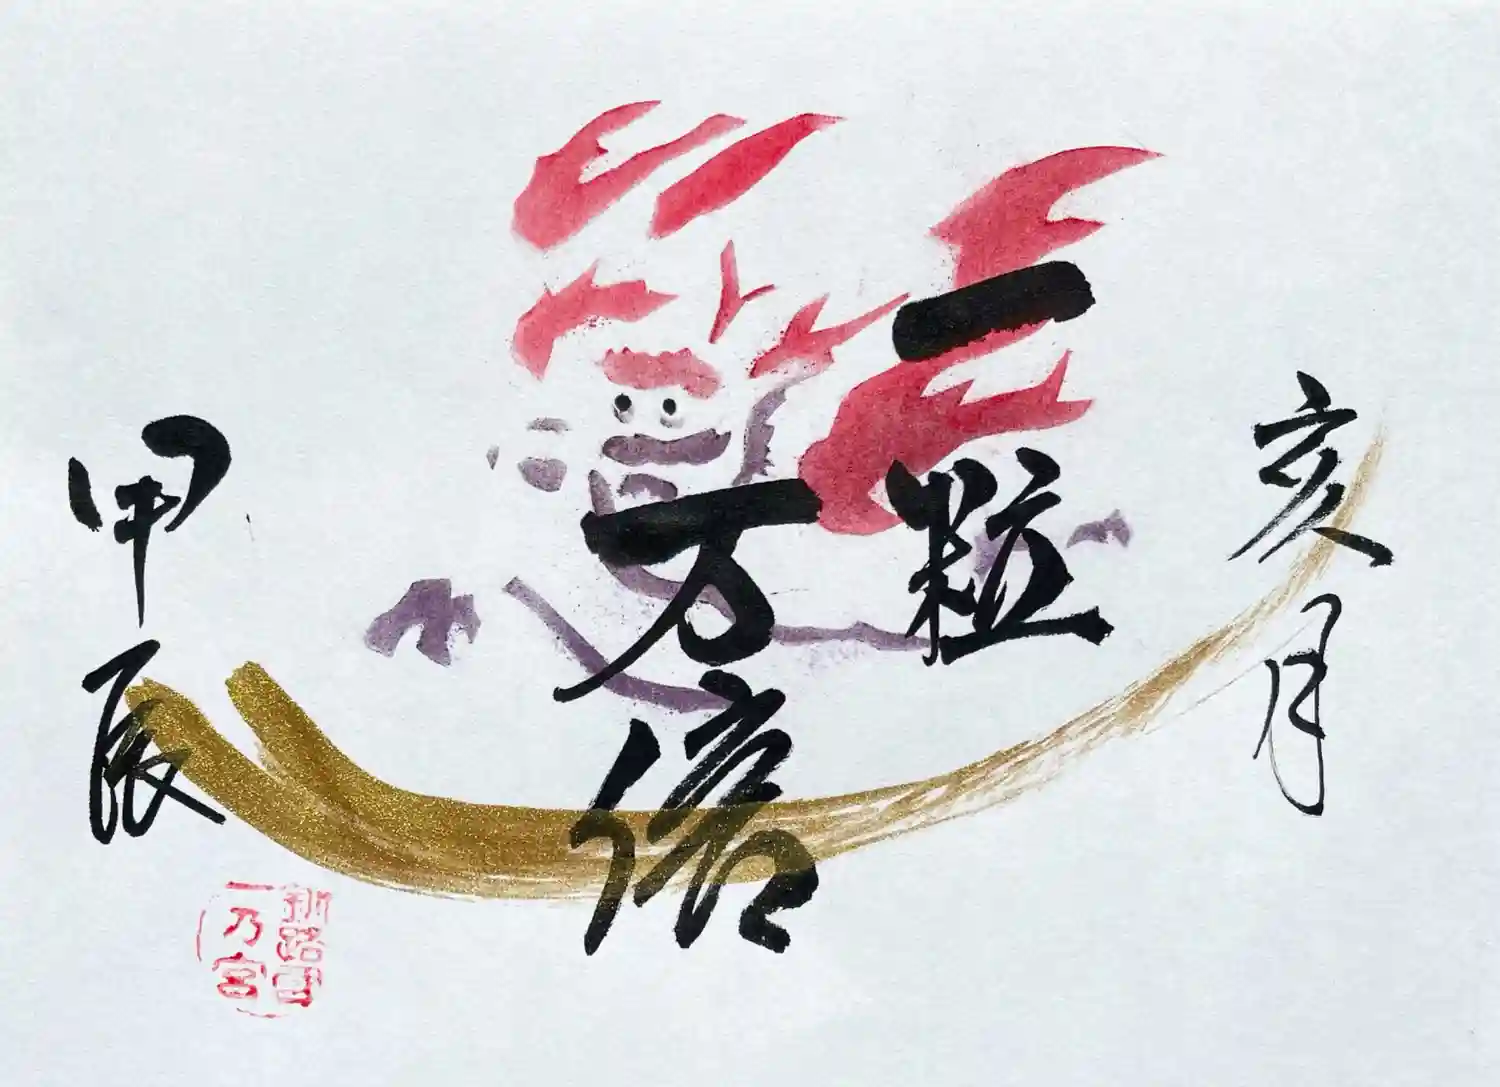 亥月
一粒
万倍
甲辰
釧路國
一乃宮